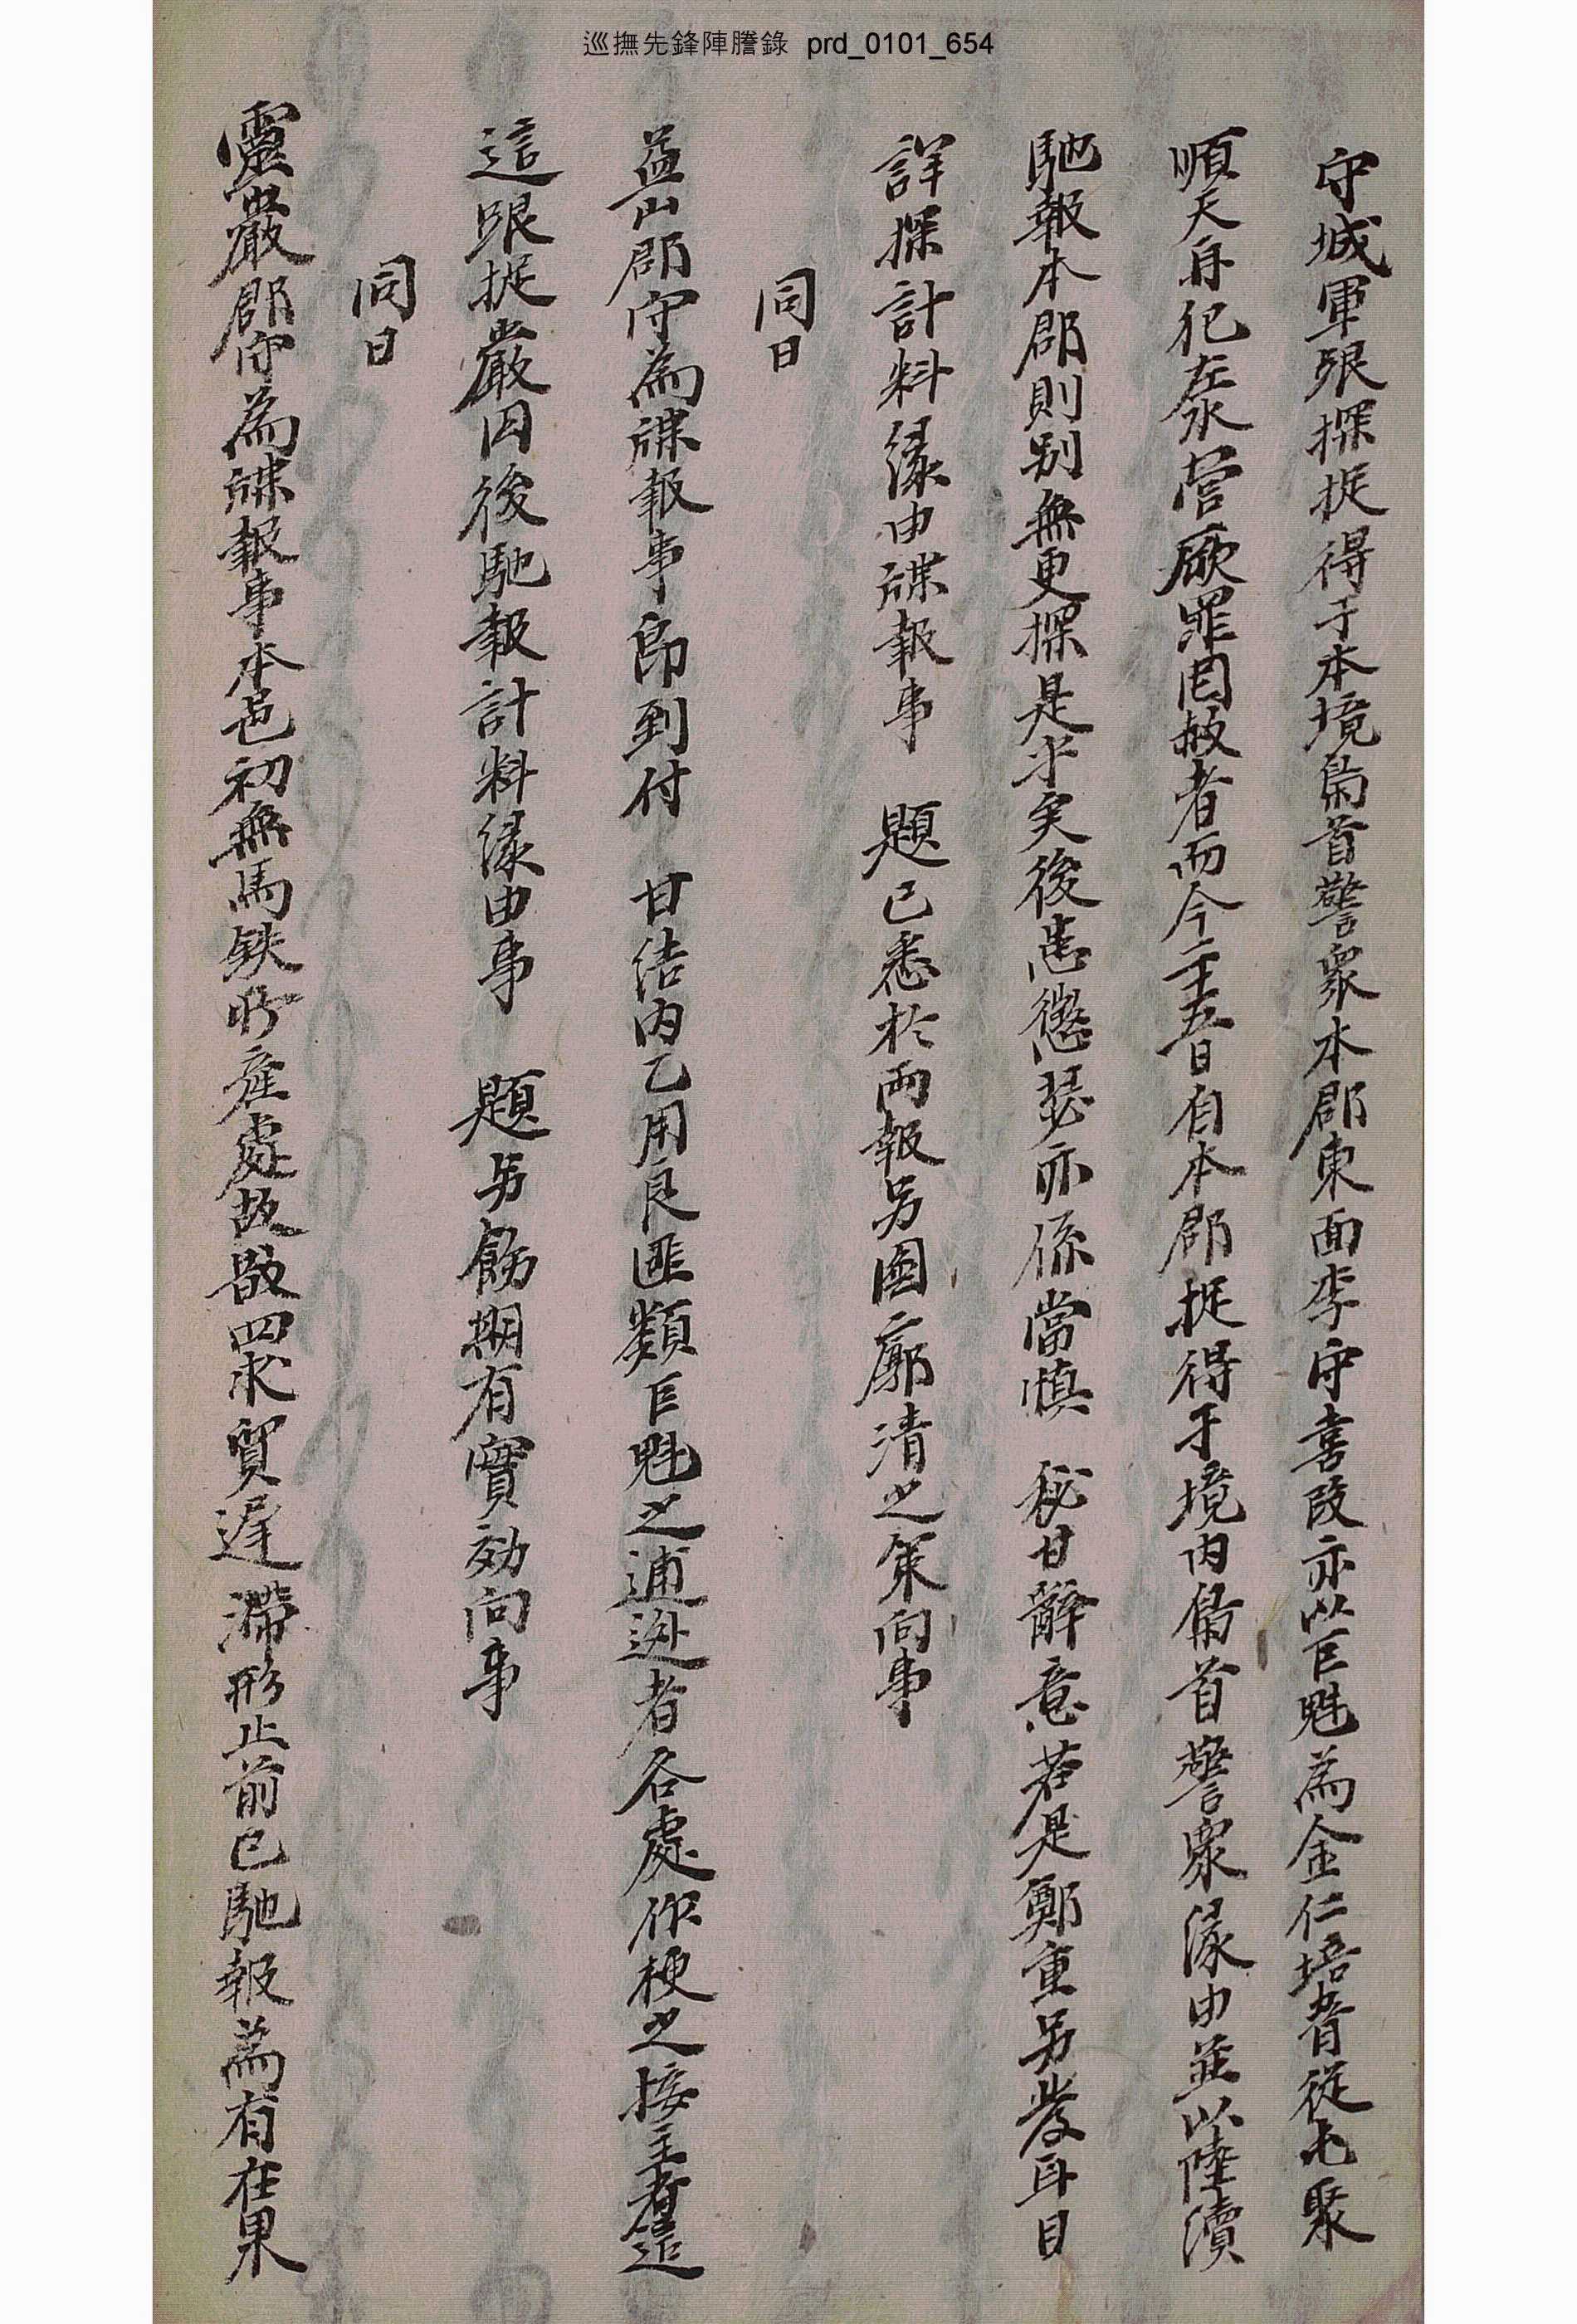 巡撫先鋒陣謄錄 prd_0101_654
守城軍跟探捉得于本境梟首警衆本郡東面李守喜段亦以巨魁為金仁培脅從屯聚
順天再犯左水營厥罪罔赦者而今二十五日自本郡捉得于境內梟首警衆緣由並以陸續
馳報本郡則別無更探是乎矣後患懲毖亦係當愼 秘甘辭意若是鄭重另發耳目
詳探計料緣由牒報事 題已悉於兩報另圖廓淸之策向事
同日
益山郡守為牒報事卽到付 甘結內乙用良匪類巨魁之逋逃者各處作梗之接主者這
這跟捉嚴囚後馳報計料緣由事 題另飭期有實効向事
同日
靈巖郡守為牒報事本邑初無馬鉄所產處故散四求貿遲滯形止前已馳報為有在果